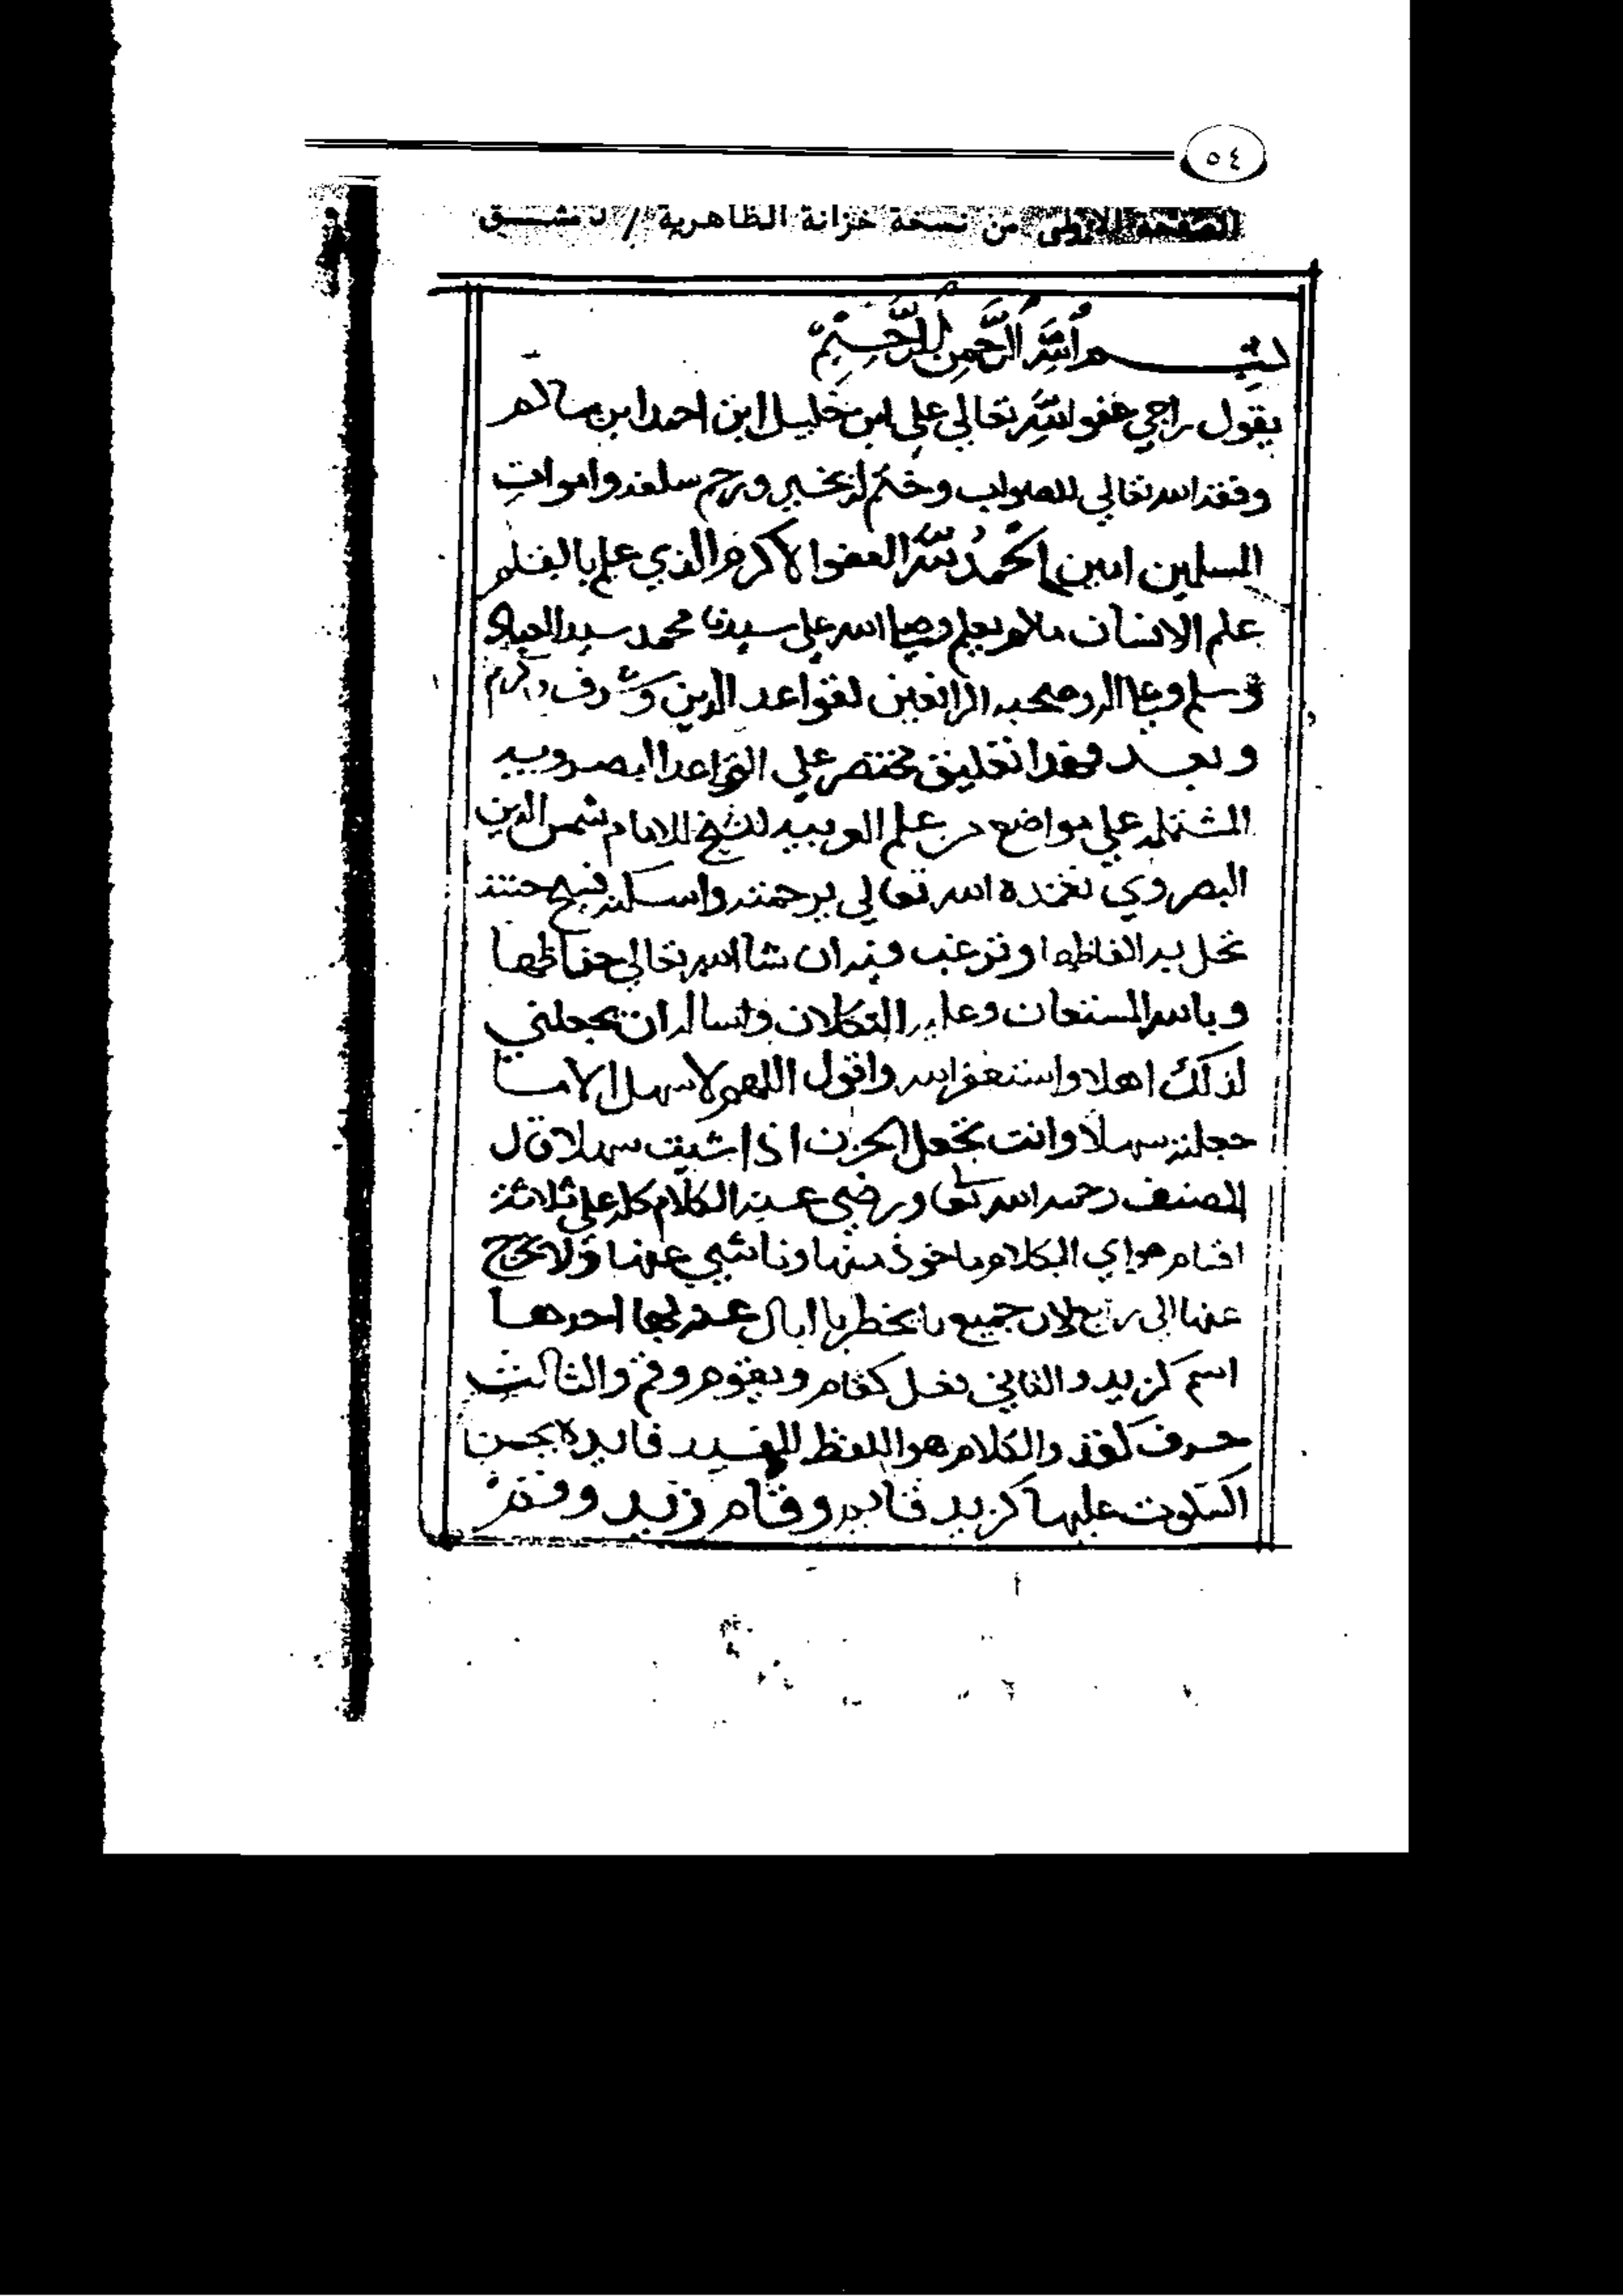 ٥٤
الصفحة الأولى من نسخة خزانة الظاهرية / دمشـــق
بسم الله الرحمن الرحيم
يقول راجي عفو الله تعالي علي ابن خليل ابن احمد ابن سالم
وفقه الله تعالي للصواب وختم له بخير ورحم سلفه واموات
المسلمين امين الحمد لله العفو الاكرم الذي علم بالقلم
علم الانسان مالم يعلم وصلي الله علي سيدنا محمد سيد العباد
وسلم وعلي اله وصحبه الرافعين لقواعد الدين وشرف وكرم
وبعد فهذا تعليق مختصر علي القواعد البصرويه
المشتمله علي مواضع من علم العربيه للشيخ الامام شمس الدين
البصروي تغمده الله تعالي برحمته واسكنه فسيح جنته
تحل به الفاظها وترغب فيه ان شا الله تعالي حفاظها
وبالله المستعان وعليه التكلان واساله ان يجعلني
لذلك اهلا واستغفر الله واقول اللهم لا سهل الا ما
جعلته سهلا وانت تجعل الحزن اذا شيت سهلا قال
المصنف رحمه الله تعا ورضي عنه الكلام كله علي ثلاثة
اقسام هو اي الكلام ماخوذ منها وناشي عنها ولا يخرج
عنها الي رابع لان جميع ما يخطر بالبال احدها
اسم كزيد والثاني فعل كقام ويقوم وقم والثالث
حرف كقد والكلام هو اللفظ المفيد فايدة يحسن
السكوت عليها كزيد قايم وقام زيد وقم